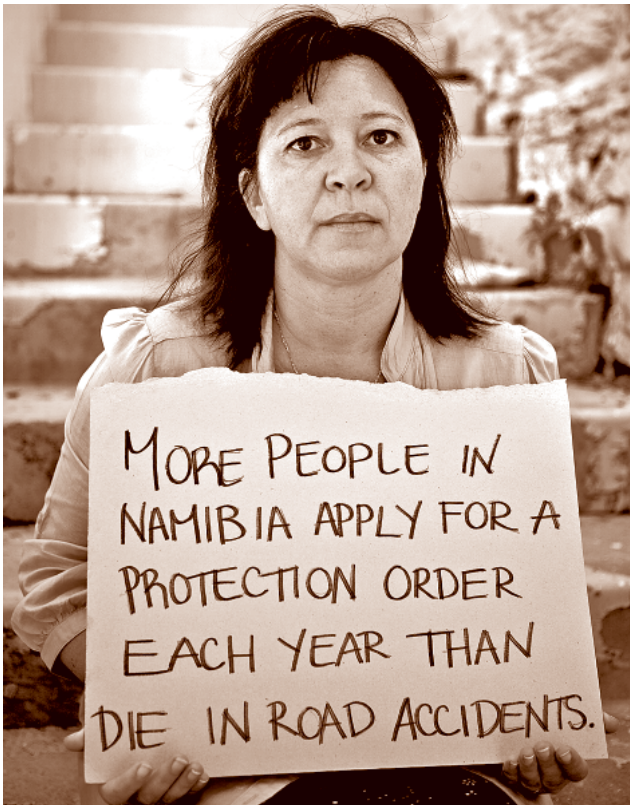 MORE PEOPLE IN
NAMIBIA APPLY FOR A
PROTECTION ORDER
EACH YEAR THAN
DIE IN ROAD ACCIDENTS.